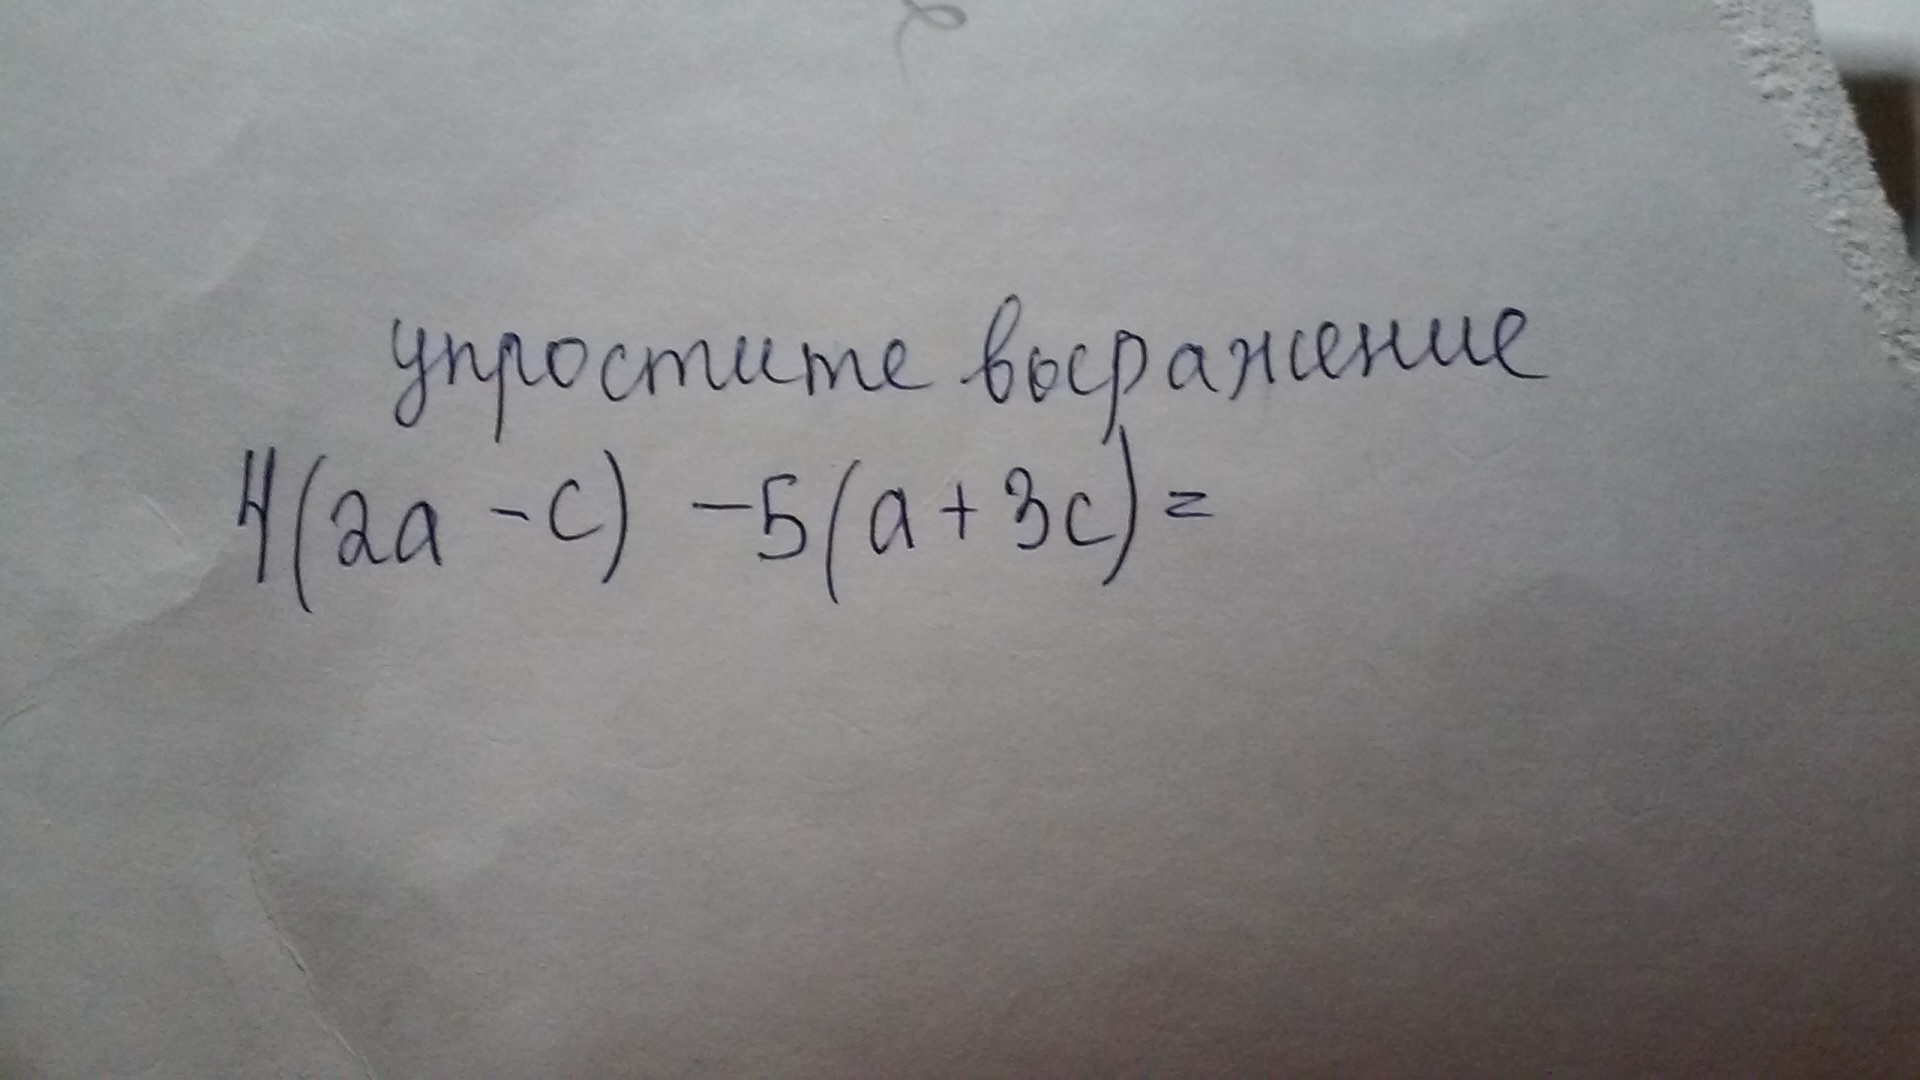 упростите выражение
4(2a - c) - 5(a + 3c) =